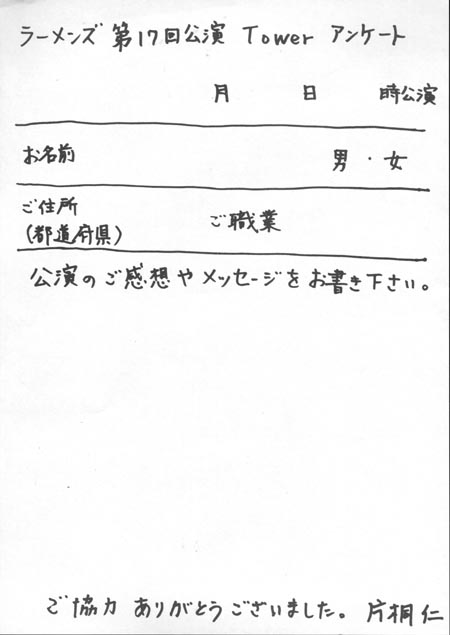 ラーメンズ 第17回公演 Tower アンケート
月 日 時公演
お名前 男・女
ご住所 ご職業
(都道府県)
公演のご感想やメッセージをお書き下さい。
ご協力ありがとうございました。片桐仁